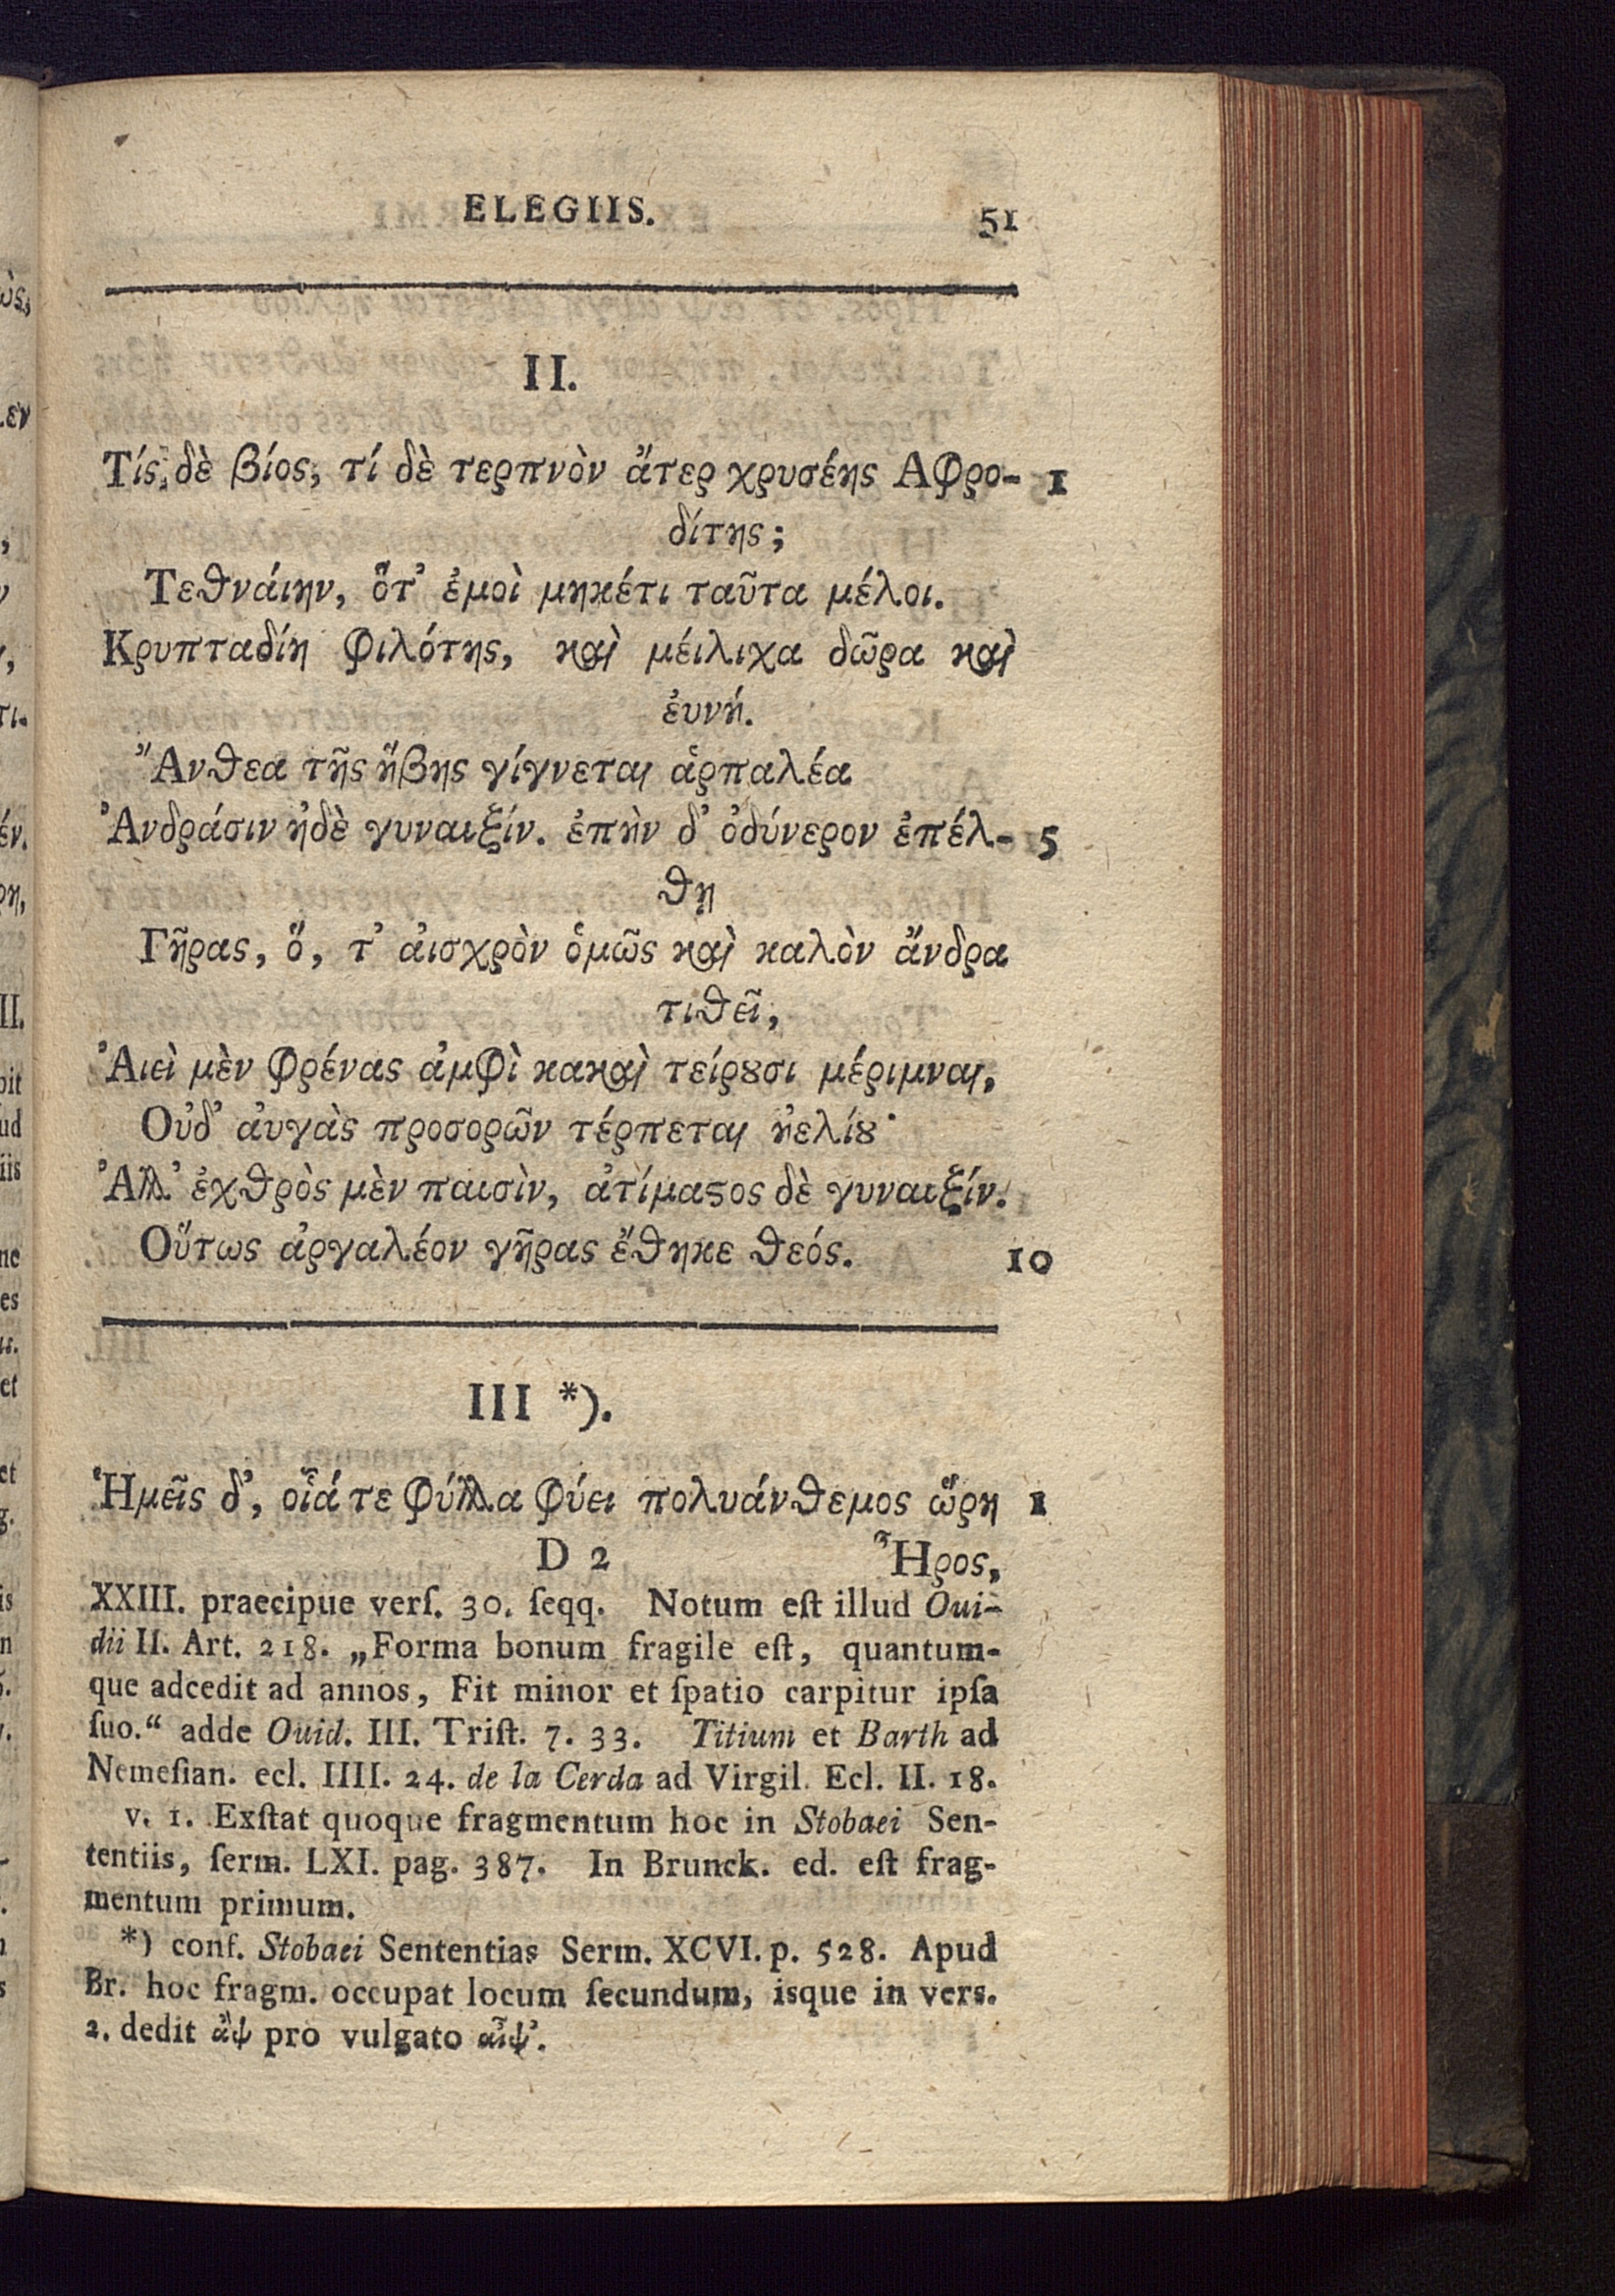 ELEGIIS. 51
II.
Τίς δὲ βίος, τί δὲ τερπνὸν ἄτερ χρυσέης Αφρο- 1
δίτης;
Τεθνάιην, ὅτ᾽ ἐμοὶ μηκέτι ταῦτα μέλοι.
Κρυπταδίη φιλότης, καὶ μέιλιχα δῶρα καὶ
ἐυνή.
Ἄνθεα τῆς ἥβης γίγνεται ἁρπαλέα
Ἀνδράσιν ἠδὲ γυναιξίν. ἐπὴν δ᾽ ὀδύνερον ἐπέλ- 5
θη
Γῆρας, ὅ, τ᾽ ἀισχρὸν ὁμῶς καὶ καλὸν ἄνδρα
τιθεῖ,
Ἀιεὶ μὲν φρένας ἀμφὶ κακαὶ τείρȣσι μέριμναι,
Οὐδ᾽ ἀυγὰς προσορῶν τέρπεται ἠελίȣ·
Ἀλλ᾽ ἐχθρὸς μὲν παισὶν, ἀτίμαϛος δὲ γυναιξίν.
Οὕτως ἀργαλέον γῆρας ἔθηκε θεός. 10
III *).
Ἡμεῖς δ᾽, οἷά τε φύλλα φύει πολυάνθεμος ὥρη 1
D 2 Ἦρος,
XXIII. praecipue verſ. 30. ſeqq. Notum eſt illud Oui-
dii II. Art. 218. „Forma bonum fragile eſt, quantum-
que adcedit ad annos, Fit minor et ſpatio carpitur ipſa
ſuo.“ adde Ouid. III. Triſt. 7. 33. Titium et Barth ad
Nemeſian. ecl. IIII. 24. de la Cerda ad Virgil. Ecl. II. 18.
v. 1. Exſtat quoque fragmentum hoc in Stobaei Sen-
tentiis, ſerm. LXI. pag. 387. In Brunck. ed. eſt frag-
mentum primum.
*) conf. Stobaei Sententias Serm. XCVI. p. 528. Apud
Br. hoc fragm. occupat locum ſecundum, isque in vers.
2. dedit ἂψ pro vulgato αἶψ᾽.